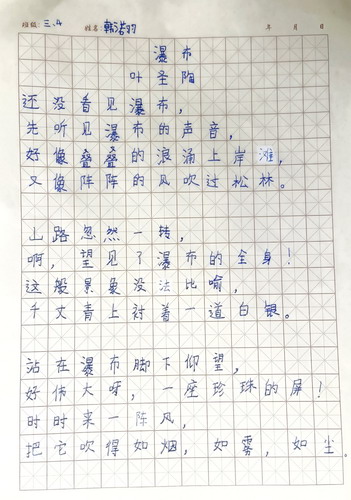 班级：三.4 姓名：韩浩羽 年 月 日
瀑布
叶圣陶
还没看见瀑布，
先听见瀑布的声音，
好像叠叠的浪涌上岸滩，
又像阵阵的风吹过松林。
山路忽然一转，
啊，望见了瀑布的全身！
这般景象没法比喻，
千丈青上衬着一道白银。
站在瀑布脚下仰望，
好伟大呀，一座珍珠的屏！
时时来一阵风，
把它吹得如烟，如雾，如尘。